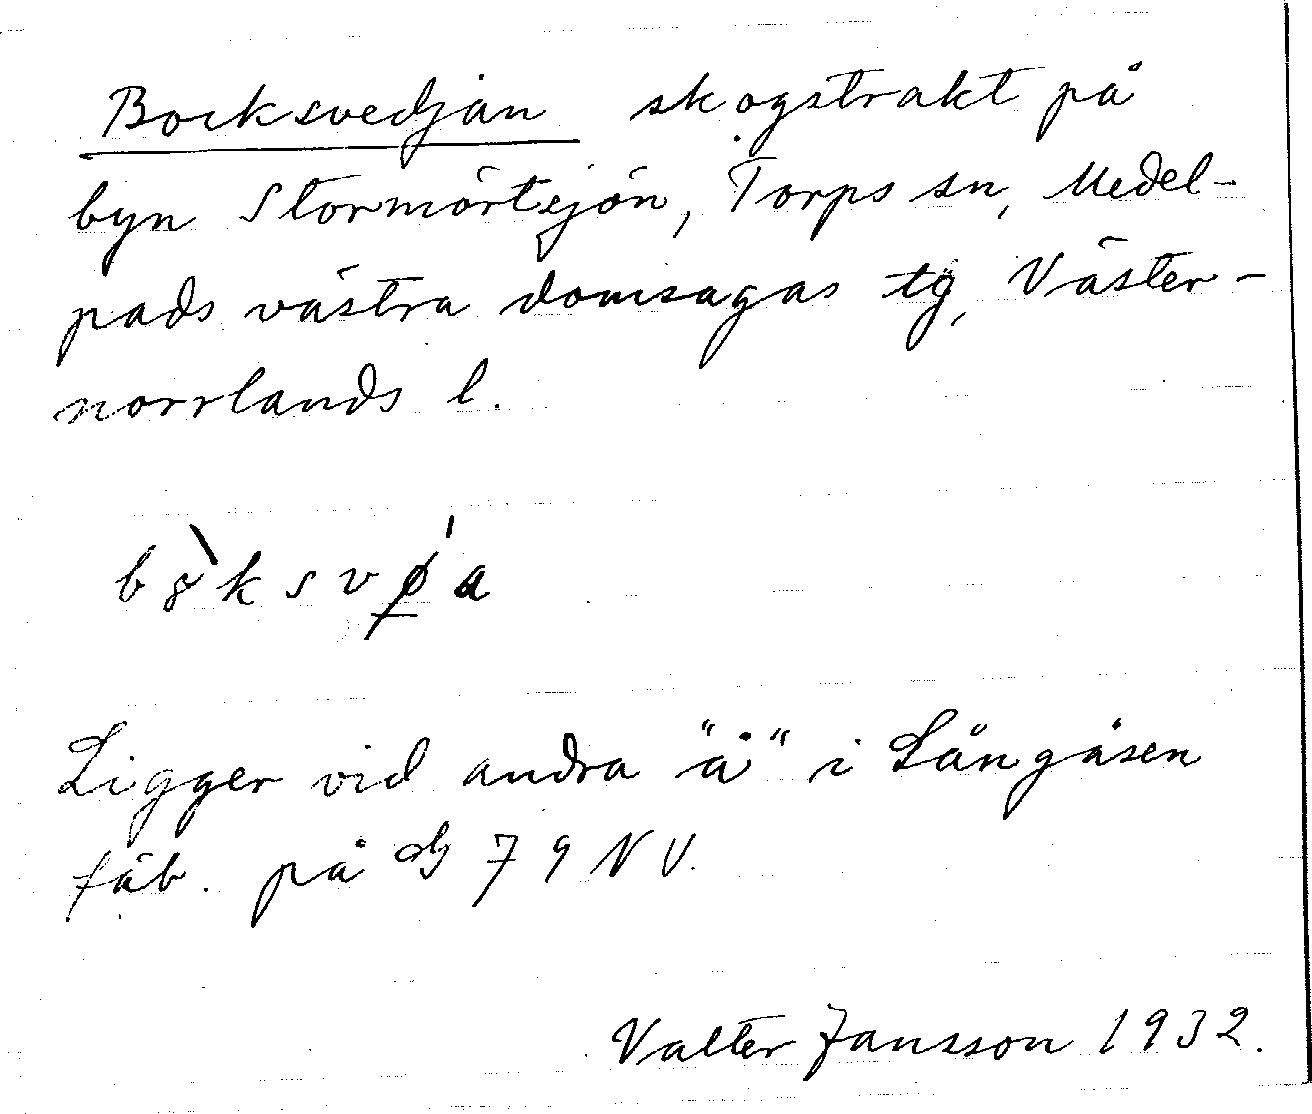 Bocksvedjan skogstrakt på
byn Stormörtsjön, Torps sn, Medel-
pads västra domsagas tg, Väster-
norrlands l.
Ligger vid andra "å" i Långåsen
fäb. på GS 79 NV.
Valter Jansson 1932.